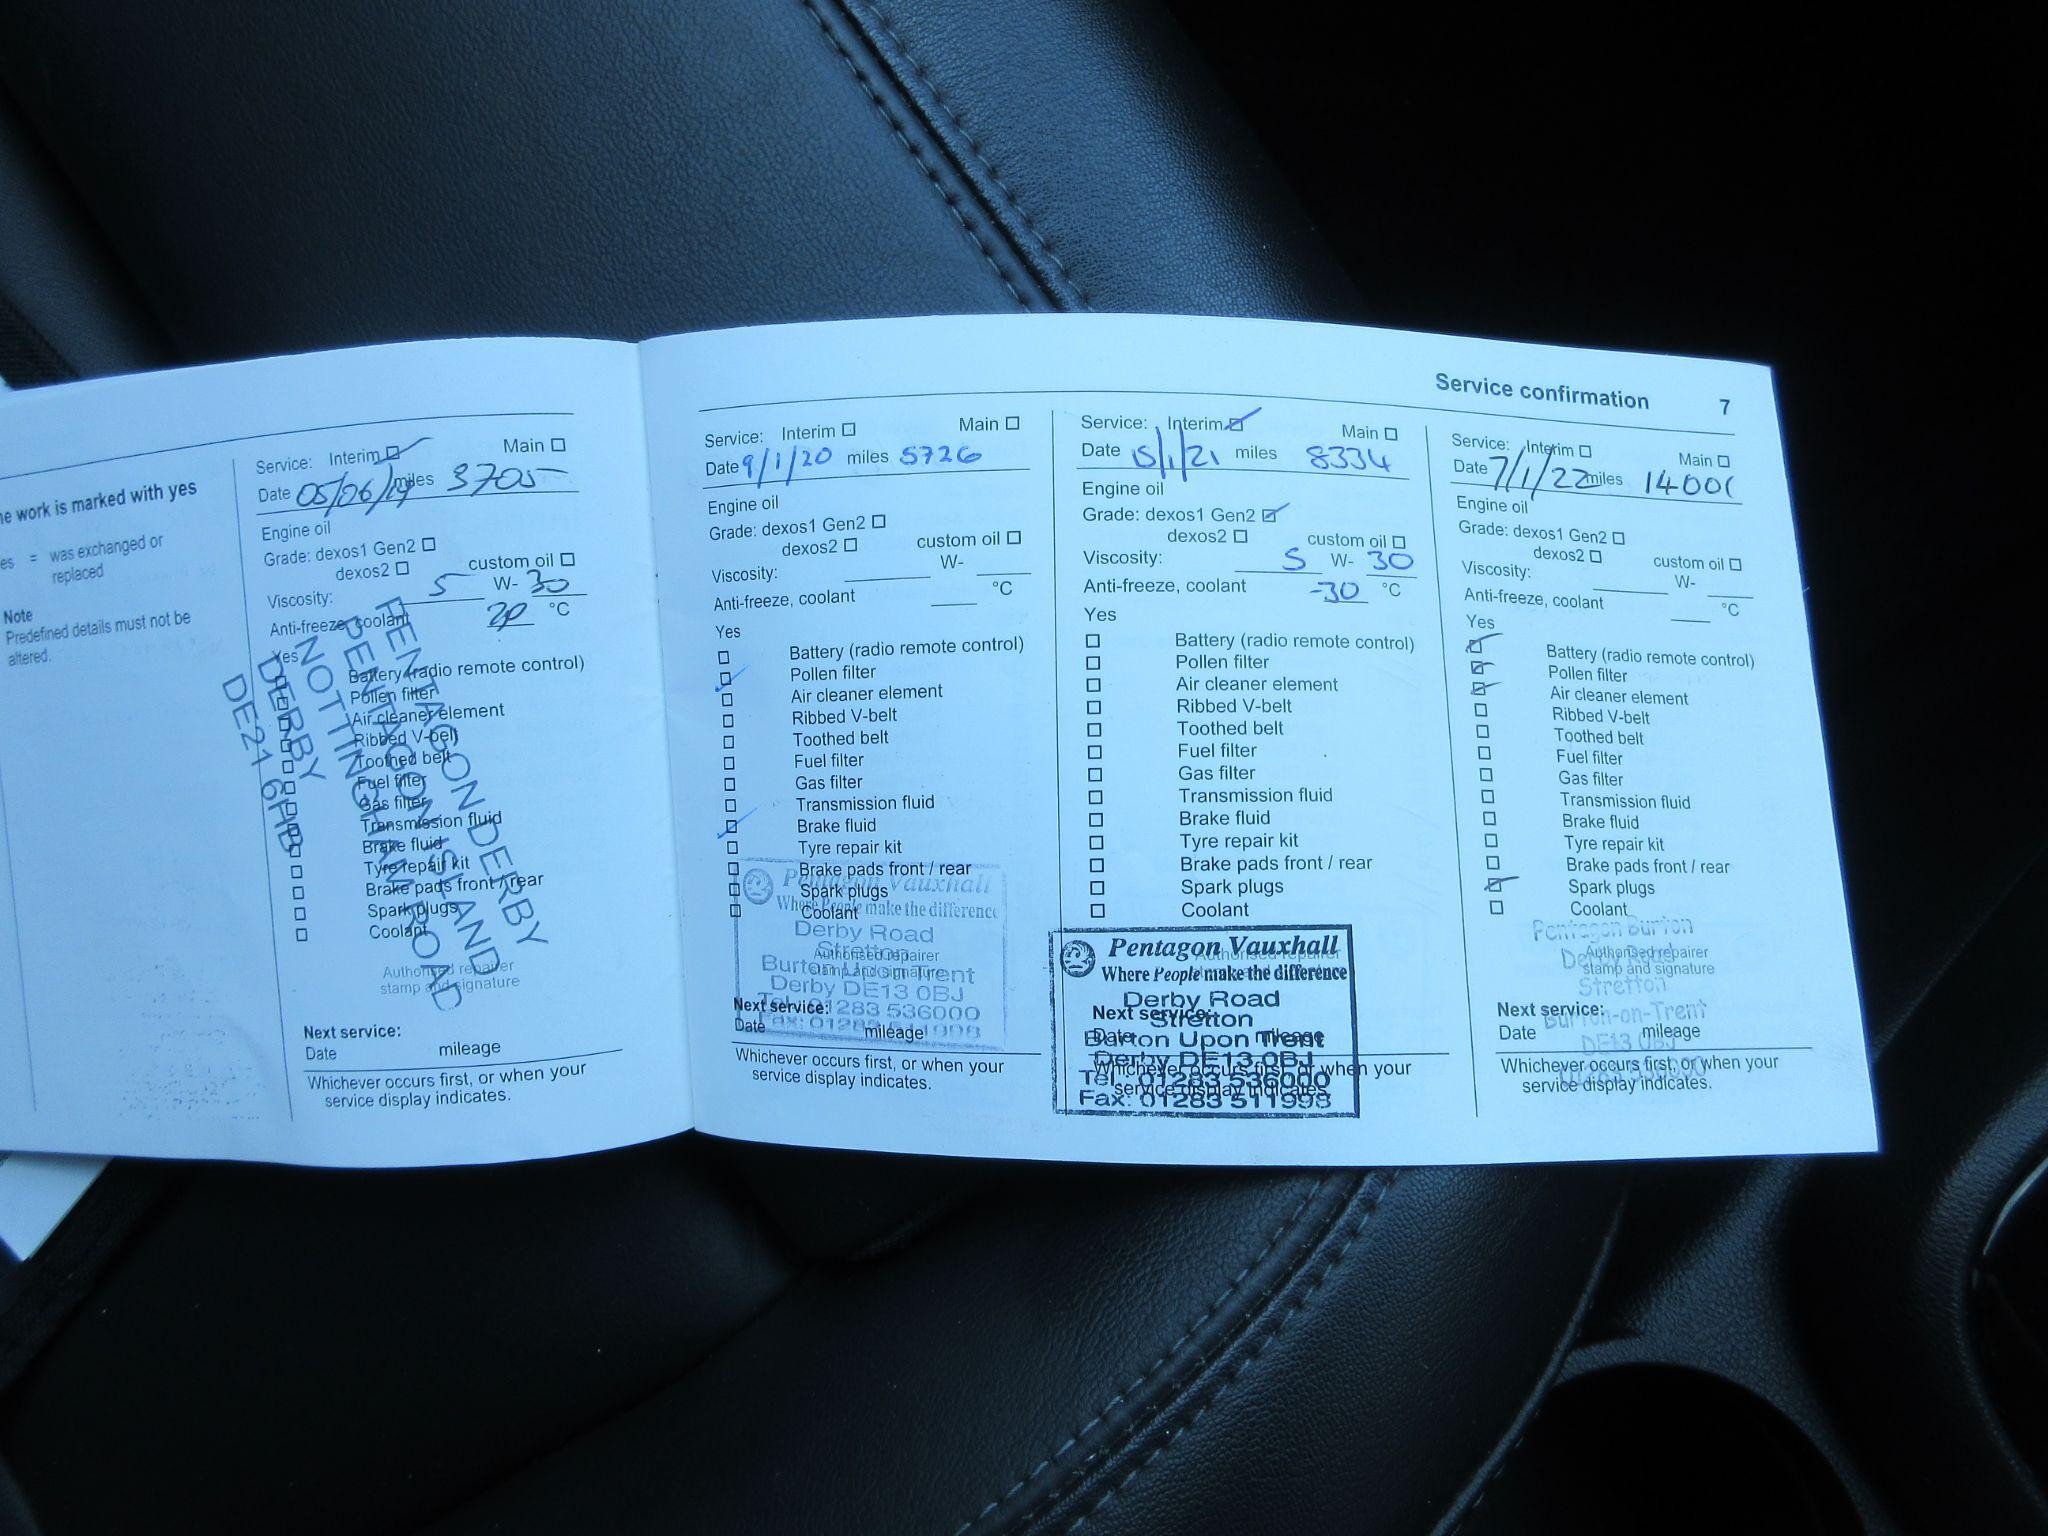 Service confirmation 7
he work is marked with yes
es = was exchanged or
replaced
Note
Predefined details must not be
altered.
Service: Interim Main
Date 05/06/19 miles 3705
Engine oil
Grade: dexos1 Gen2
dexos2 custom oil
Viscosity: 5 W- 30
Anti-freeze, coolant °C
Yes
Battery (radio remote control)
Pollen filter
Air cleaner element
Ribbed V-belt
Toothed belt
Fuel filter
Gas filter
Transmission fluid
Brake fluid
Tyre repair kit
Brake pads front / rear
Spark plugs
Coolant
Authorised repairer
stamp and signature
PENTAGON DERBY
PENTAGON ISLAND
NOTTINGHAM ROAD
DERBY
DE21 6HB
Next service:
Date mileage
Whichever occurs first, or when your
service display indicates.
Service: Interim Main
Date 9/1/20 miles 5726
Engine oil
Grade: dexos1 Gen2
dexos2 custom oil
Viscosity: W-
Anti-freeze, coolant °C
Yes
Battery (radio remote control)
Pollen filter
Air cleaner element
Ribbed V-belt
Toothed belt
Fuel filter
Gas filter
Transmission fluid
Brake fluid
Tyre repair kit
Brake pads front / rear
Spark plugs
Coolant
Authorised repairer
stamp and signature
Pentagon Vauxhall
Where People make the difference
Derby Road
Stretton
Burton Upon Trent
Derby DE13 0BJ
Tel: 01283 536000
Fax: 01283 511998
Next service:
Date mileage
Whichever occurs first, or when your
service display indicates.
Service: Interim Main
Date 15/1/21 miles 8334
Engine oil
Grade: dexos1 Gen2
dexos2 custom oil
Viscosity: 5 W- 30
Anti-freeze, coolant -30 °C
Yes
Battery (radio remote control)
Pollen filter
Air cleaner element
Ribbed V-belt
Toothed belt
Fuel filter
Gas filter
Transmission fluid
Brake fluid
Tyre repair kit
Brake pads front / rear
Spark plugs
Coolant
Authorised repairer
Pentagon Vauxhall
Where People make the difference
Derby Road
Stretton
Burton Upon Trent
Derby DE13 0BJ
Tel: 01283 536000
Fax: 01283 511998
Next service:
Date mileage
Whichever occurs first, or when your
service display indicates.
Service: Interim Main
Date 7/1/22 miles
Engine oil
Grade: dexos1 Gen2
dexos2 custom oil
Viscosity: W-
Anti-freeze, coolant °C
Yes
Battery (radio remote control)
Pollen filter
Air cleaner element
Ribbed V-belt
Toothed belt
Fuel filter
Gas filter
Transmission fluid
Brake fluid
Tyre repair kit
Brake pads front / rear
Spark plugs
Coolant
Authorised repairer
stamp and signature
Pentagon Burton
Derby Road
Stretton
Burton-on-Trent
DE13 0BJ
Next service:
Date mileage
Whichever occurs first, or when your
service display indicates.